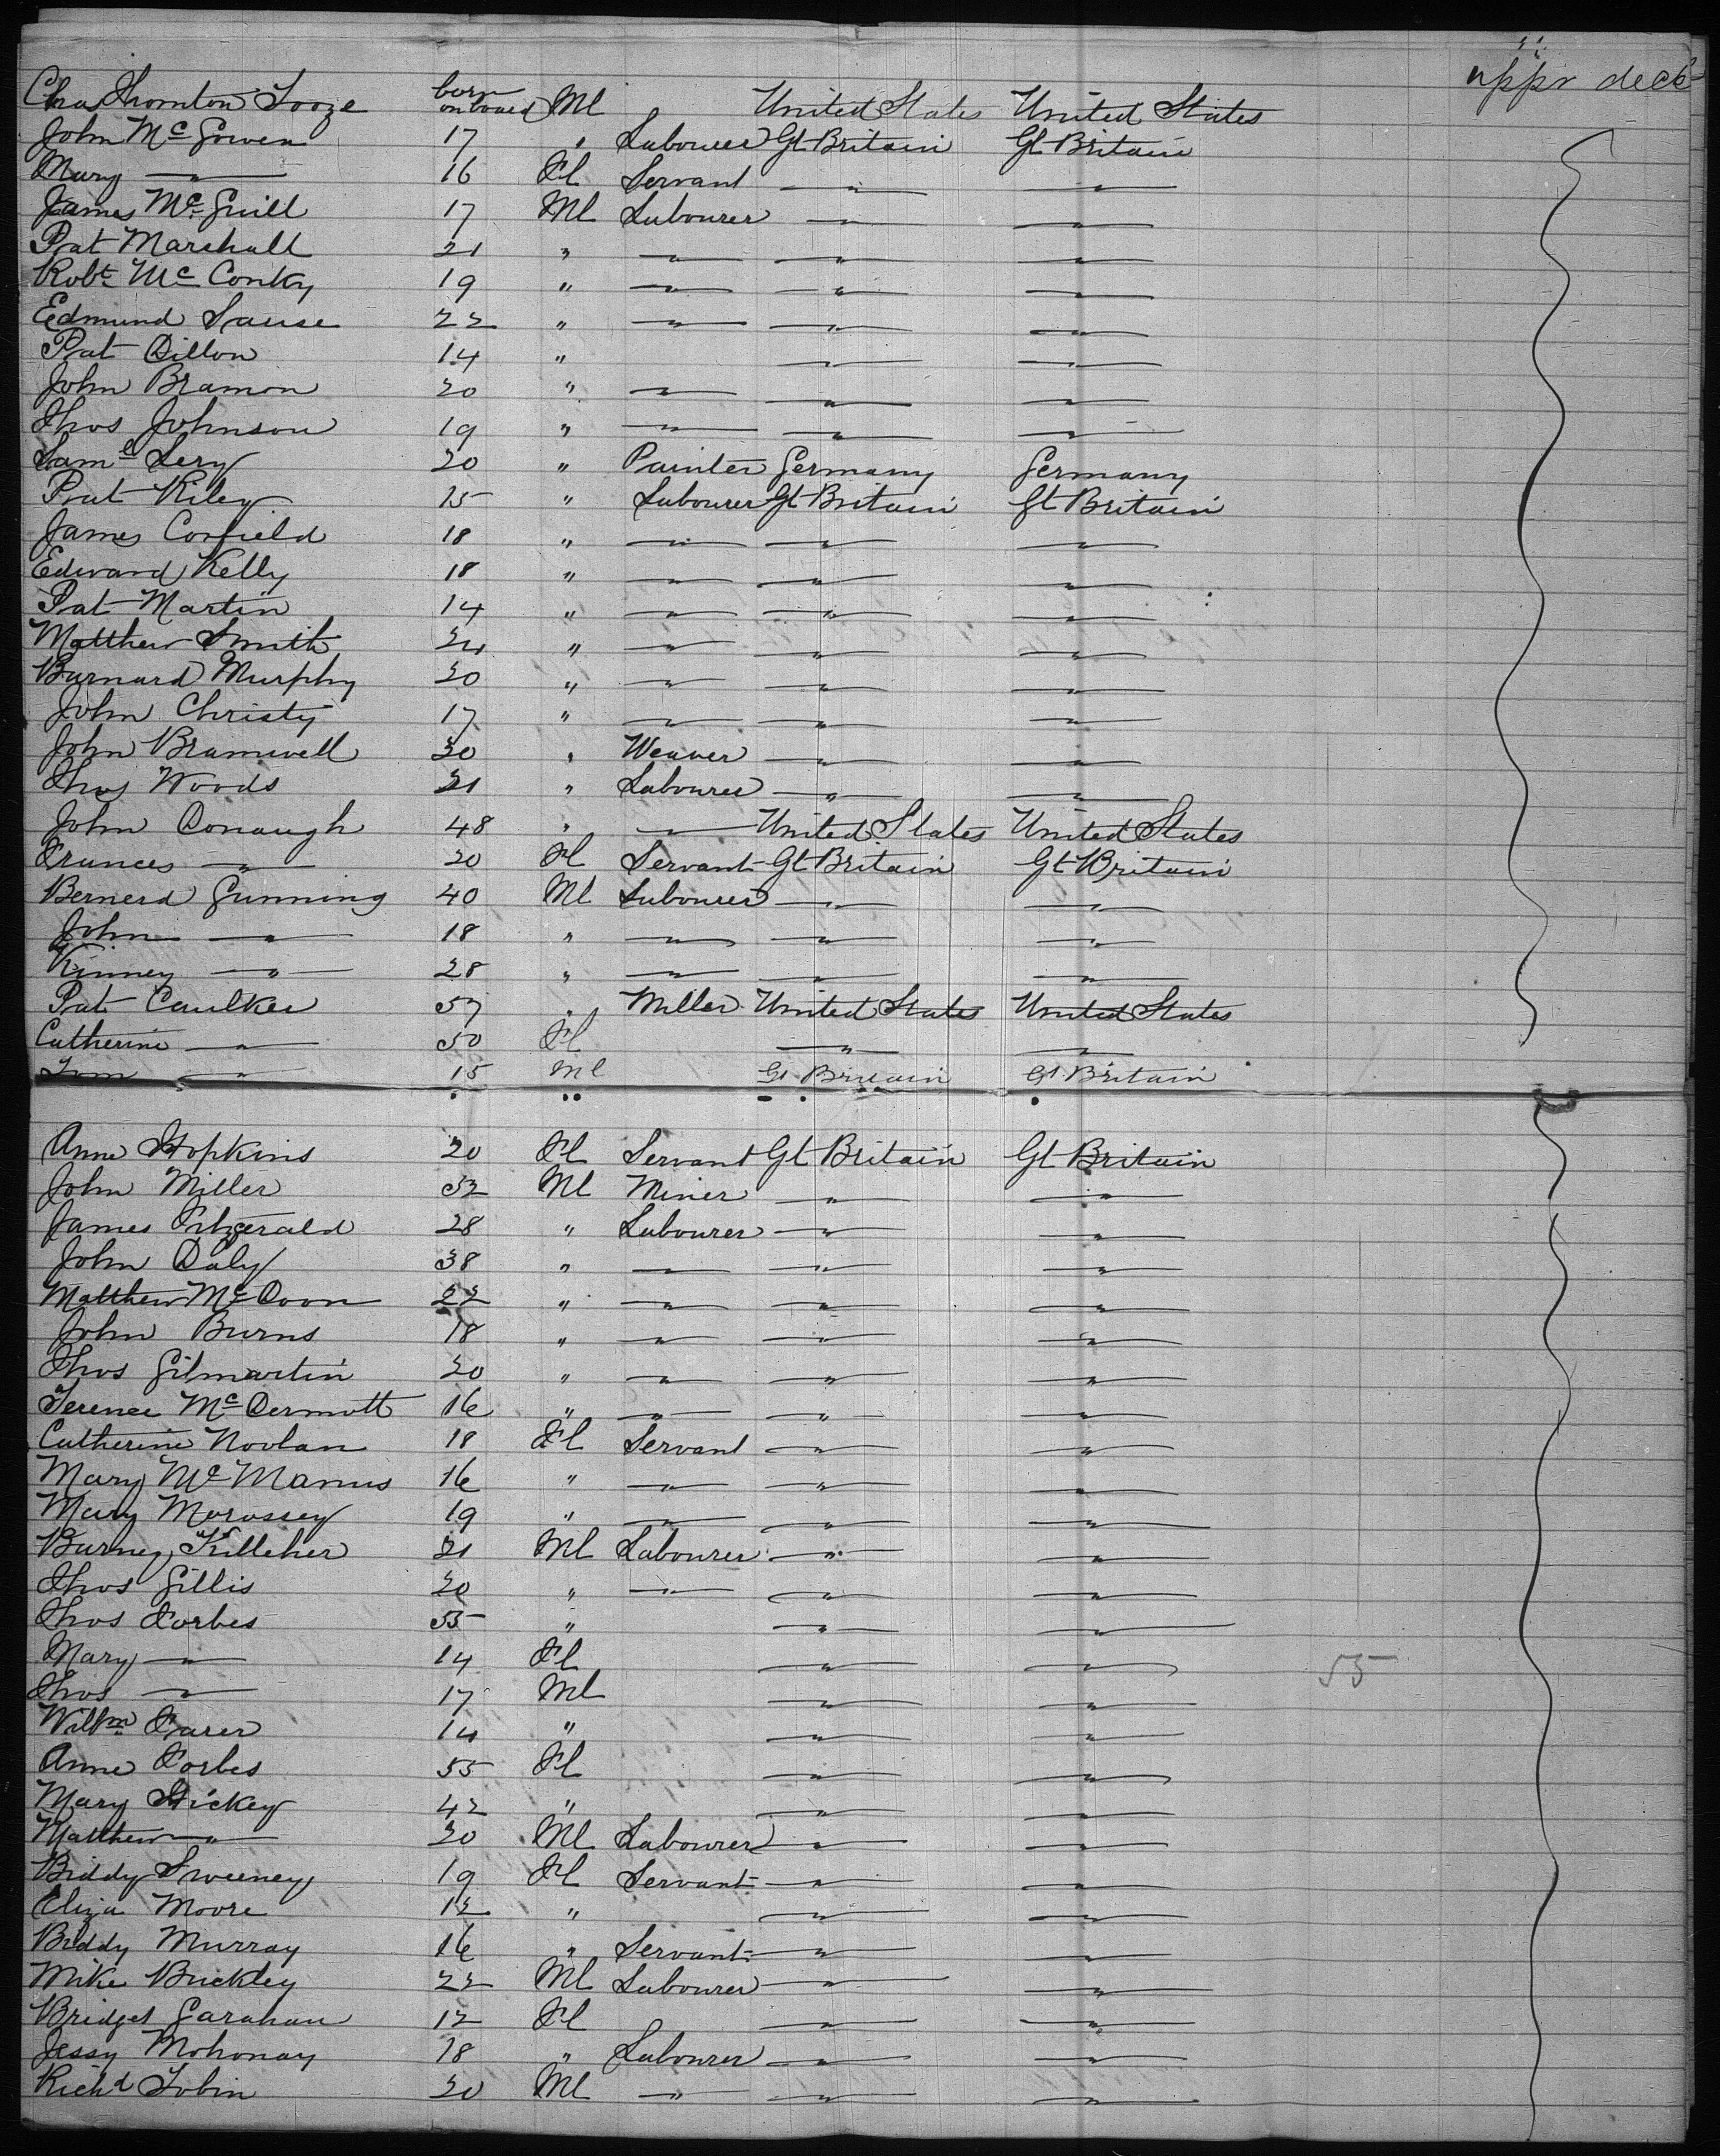 uppr deck
Chas Thornton Tooze born onboard Ml United States United States
John McGowen 17 " Labourer Gt Britain Gt Britain
Mary —"— 16 Fl Servant —"— —"—
James McGuill 17 Ml Labourer —"— —"—
Pat Marshall 21 " —"— —"— —"—
Robt McConky 19 " —"— —"— —"—
Edmund Sause 22 " —"— —"— —"—
Pat Dillon 14 " —"— —"—
John Bramon 20 " —"— —"— —"—
Thos Johnson 19 " —"— —"— —"—
Saml Lery 20 " Painter Germany Germany
Pat Riley 15 " Labourer Gt Britain Gt Britain
James Confield 18 " —"— —"— —"—
Edward Kelly 18 " —"— —"— —"—
Pat Martin 14 " —"— —"— —"—
Matthew Smith 24 " —"— —"— —"—
Barnard Murphy 20 " —"— —"— —"—
John Christy 17 " —"— —"— —"—
John Bramwell 30 " Weaver —"— —"—
Thos Woods 21 " Labourer —"— —"—
John Donaugh 48 " —"— United States United States
Frances —"— 20 Fl Servant Gt Britain Gt Britain
Bernerd Gunning 40 Ml Labourer —"— —"—
John —"— 18 " —"— —"— —"—
Kinney —"— 28 " —"— —"— —"—
Pat Caulker 57 " Miller United States United States
Catherine —"— 50 Fl —"— —"—
Tom —"— 15 Ml Gt Britain Gt Britain
Anne Hopkins 20 Fl Servant Gt Britain Gt Britain
John Miller 32 Ml Miner —"— —"—
James Fitzgerald 28 " Labourer —"— —"—
John Daly 38 " —"— —"— —"—
Matthew McDoon 22 " —"— —"— —"—
John Burns 18 " —"— —"— —"—
Thos Gilmartin 20 " —"— —"— —"—
Terence McDermott 16 " —"— —"— —"—
Catherine Noolan 18 Fl Servant —"— —"—
Mary McManus 16 " —"— —"— —"—
Mary Morossey 19 " —"— —"— —"—
Barney Killeher 21 Ml Labourer —"— —"—
Thos Gillis 20 " —"— —"— —"—
Thos Forbes 55 " —"— —"—
Mary —"— 14 Fl —"— —"— 55
Thos —"— 17 Ml —"— —"—
Willm Farer 14 " —"— —"—
Anne Forbes 55 Fl —"— —"—
Mary Hickey 42 " —"— —"—
Matthew —"— 20 Ml Labourer —"— —"—
Biddy Sweeney 19 Fl Servant —"— —"—
Eliza Moore 12 " —"— —"—
Biddy Murray 16 " Servant —"— —"—
Mike Brickley 22 Ml Labourer —"— —"—
Bridget Garahan 12 Fl —"— —"—
Jessy Mohonay 18 " Labourer —"— —"—
Richd Tobin 20 Ml —"— —"— —"—